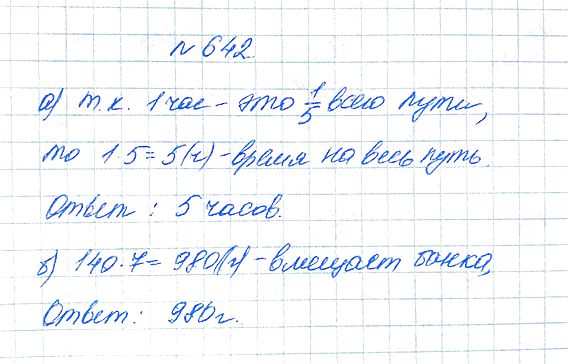 №642
а) т.к. 1 час - это 1/5 всего пути,
то 1·5=5(ч)-время на весь путь.
Ответ: 5 часов.
б) 140·7=980(г)-вмещает банка,
Ответ: 980г.